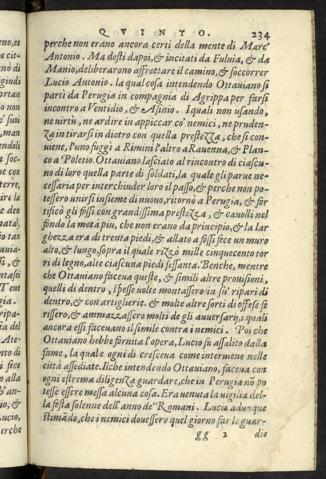 QVINTO. 234
perche non erano ancora certi della mente di Marc'
Antonio. Ma desti dapoi, & incitati da Fuluia, & da
Manio, deliberarono affrettare il camino, & soccorrer
Lucio Antonio. la qual cosa intendendo Ottauiano si
partì da Perugia in compagnia di Agrippa per farsi
incontro a Ventidio, & Asinio. I quali non usando,
ne uirtu, ne ardire in appiccar co' nemici, ne pruden-
za in tirarsi in dietro con quella prestezza, che si con-
uiene, l'uno fuggì a Rimini l'altro a Rauenna, & Plan-
co a Poletio. Ottauiano lasciato al rincontro di ciascu-
no di loro quella parte di soldati, la quale gli parue ne-
cessaria per interchiuder loro il passo, & perche non po-
tessero unirsi insieme di nuouo, ritornò a Perugia, & for
tificò gli fossi con grandissima prestezza, & cauolli nel
fondo la metà piu, che non erano da principio, & la lar
ghezza era di trenta piedi, & allato a fossi fece un muro
alto, & lungo, sopra il quale rizzò mille cinquecento tor
ri di legno, alte ciascuna piedi sessanta. Benche, mentre
che Ottauiano faceua queste, & simili altre prouisioni,
quelli di dentro, spesse uolte montassero in su' ripari di
dentro, & con artiglierie, & molte altre sorti di offese fe
rissero, & ammazzassero molti de gli auuersarij, i quali
ancora essi faceuano il simile contra i nemici. Poi che
Ottauiano hebbe fornita l'opera, Lucio fu assalito dalla
fame, la quale ogni dì cresceua come interuiene nelle
città assediate. Il che intendendo Ottauiano, faceua con
ogni estrema diligenza guardare, che in Perugia nò po
tesse essere messa alcuna cosa. Era uenuta la uigilia del-
la festa solenne dell'anno de' Romani. Lucio adunque
stimádo, che i nemici douessero quel giorno far la guar-
gg 2 dia